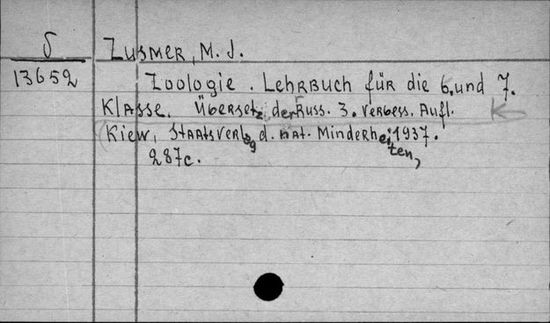 δ Zusmer, M. J.
13652 Zoologie. Lehrbuch für die 6. und 7.
Klasse. Übersetz. der Russ. 3. verbess. Aufl.
Kiew, Staatsverlag d. nat. Minderheiten, 1937.
287c.